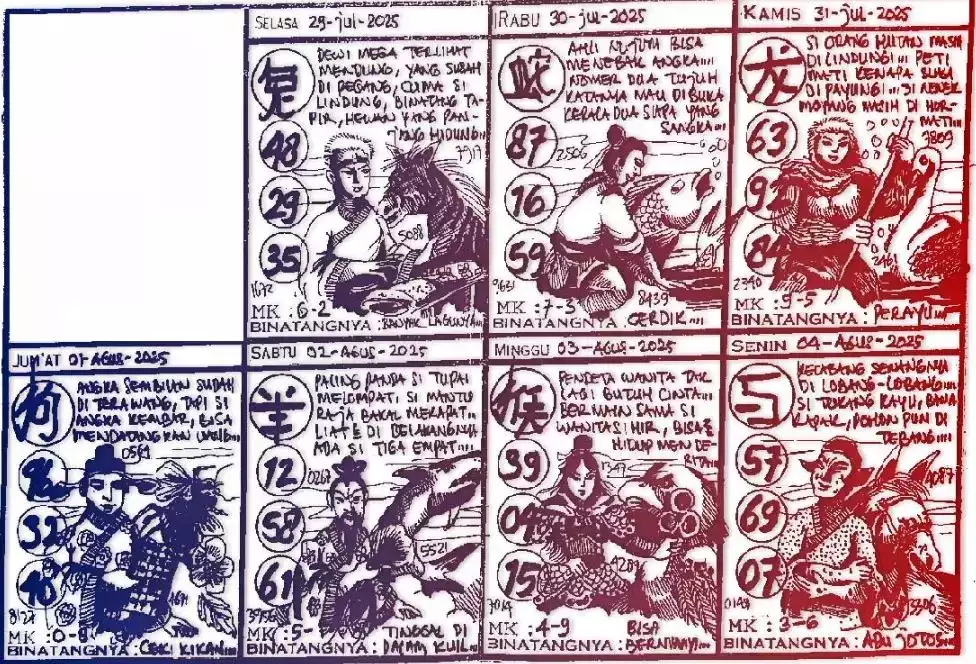 SELASA 29-jul-2025
兔
DEWI MEGA TERLIHAT
MENDUNG, YANG SUDAH
DI PEGANG, CUMA SI
LINDUNG, BINATANG TA-
PIR, HEWAN YANG PAN-
JANG HIDUNG...
48
29
35
5088
1672
MK : 6-2
BINATANGNYA : BANYAK LAGUNYA...
RABU 30-jul-2025
蛇
AHLI NUJUM BISA
MENEBAK ANGKA...
NOMER DUA TUJUH
KATANYA MAU DI BUKA
KEPALA DUA SIAPA YANG
SANGKA...
87
2506
16
59
8439
MK : 7-3
BINATANGNYA : CERDIK...
KAMIS 31-jul-2025
龙
SI ORANG HUTAN MASIH
DI LINDUNGI... PETI
MATI KENAPA SUKA
DI PAYUNGI... SI NENEK
MOYANG MASIH DI HOR-
MATI...
7809
63
92
84
2461
2340
MK : 9-5
BINATANGNYA : PERAYU...
JUM'AT 01-AGUS-2025
狗
ANGKA SEMBILAN SUDAH
DI TERAWANG, TAPI SI
ANGKA KEMBAR, BISA
MENDATANGKAN
0561
32
MK : 0-8
BINATANGNYA : CEKI KIKAN...
SABTU 02-AGUS-2025
羊
PALING PANDAI SI TUPAI
MELOMPAT, SI MANTU
RAJA BAKAL MERAPAT...
LIAT DI BELAKANGNYA
ADA SI TIGA EMPAT...
12
0267
58
5521
61
MK : 5-
BINATANGNYA : TINGGAL DI
DALAM KUIL...
MINGGU 03-AGUS-2025
猴
PENDETA WANITA TAK
LAGI BUTUH CINTA...
BERMAIN SAMA SI
WANITA SIHIR, BISA
HIDUP MENDE-
RITA...
39
1347
04
15
7014
MK : 4-9
BINATANGNYA : BISA
BERNYANYI...
SENIN 04-AGUS-2025
马
KECEBANG SENANGNYA
DI LOBANG-LOBANG...
SI TUKANG KAYU, BAWA
KAPAK, POHON PUN DI
TEBANG...
57
69
07
MK : 3-6
BINATANGNYA : ADU JOTOS...